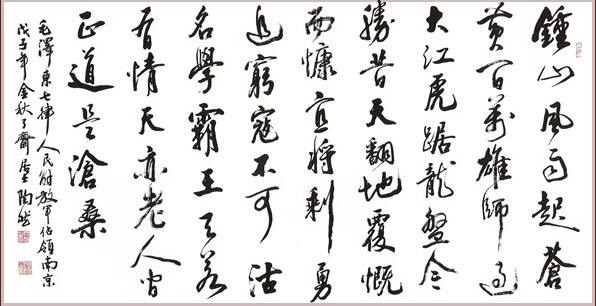 鍾山風雨起蒼
黄百萬雄師過
大江虎踞龍盤今
勝昔天翻地覆慨
而慷宜將剩勇
追窮寇不可沽
名學霸王天若
有情天亦老人间
正道是滄桑
毛澤東七律人民解放軍佔領南京
戊子年金秋了齋居士陶然